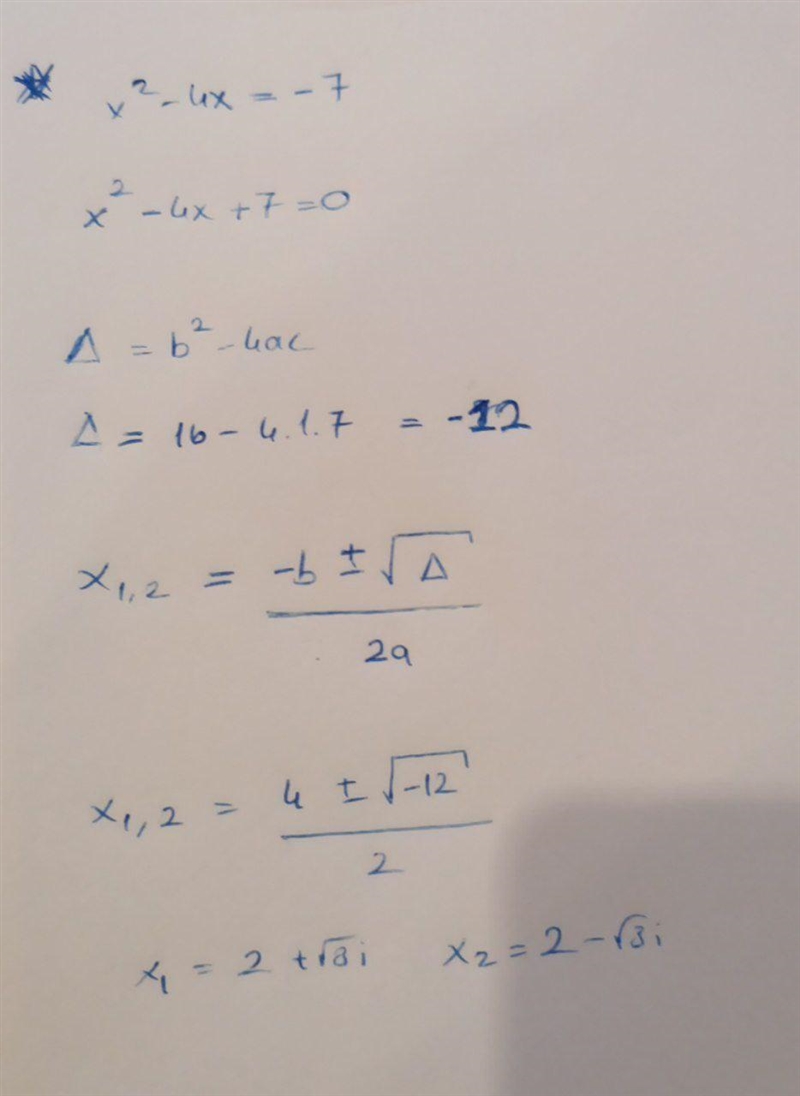 x² - 4x = -7
x² - 4x + 7 = 0
Δ = b² - 4ac
Δ = 16 - 4.1.7 = -12
x₁,₂ = -b ± √Δ
2a
x₁,₂ = 4 ± √-12
2
x₁ = 2 + √3i x₂ = 2 - √3i